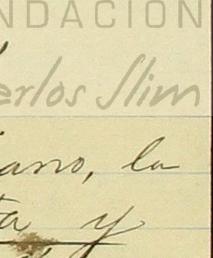 NDACIÓN
erlos Slim
iano, la
ta y